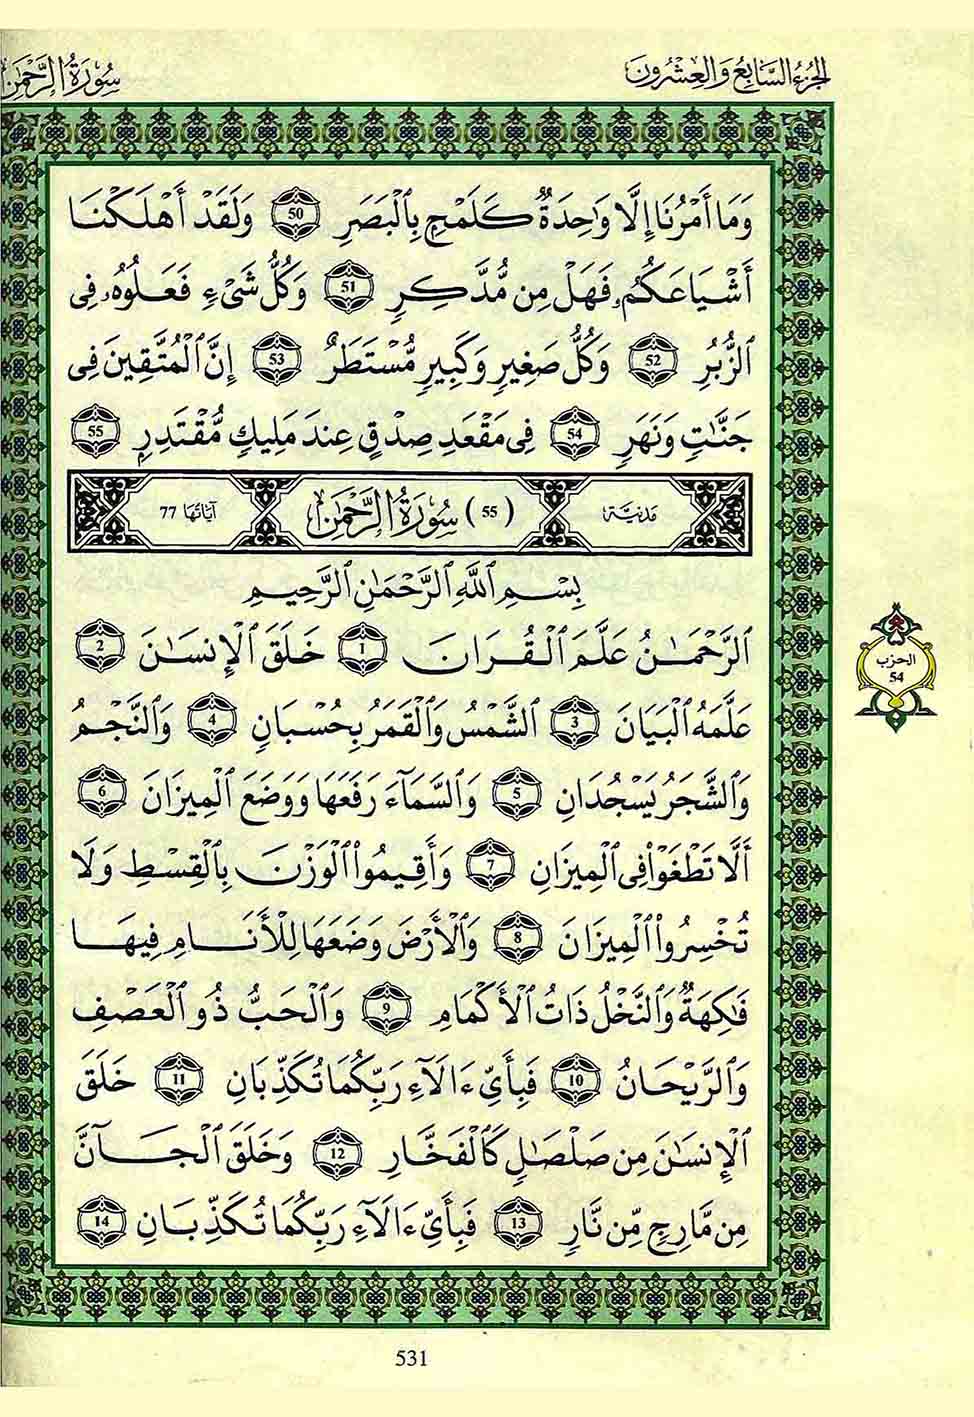 الجزء السابع والعشرون
سورة الرحمن
وَمَا أَمْرُنَا إِلَّا وَٰحِدَةٌ كَلَمْحٍ بِالْبَصَرِ 50 وَلَقَدْ أَهْلَكْنَا
أَشْيَاعَكُمْ فَهَلْ مِن مُّدَّكِرٍ 51 وَكُلُّ شَيْءٍ فَعَلُوهُ فِي
الزُّبُرِ 52 وَكُلُّ صَغِيرٍ وَكَبِيرٍ مُّسْتَطَرٌ 53 إِنَّ الْمُتَّقِينَ فِي
جَنَّٰتٍ وَنَهَرٍ 54 فِي مَقْعَدِ صِدْقٍ عِندَ مَلِيكٍ مُّقْتَدِرٍ 55
مدنية (55) سُورَةُ الرَّحْمٰن آياتها 77
بِسْمِ اللَّهِ الرَّحْمَٰنِ الرَّحِيمِ
الرَّحْمَٰنُ عَلَّمَ الْقُرَانَ 1 خَلَقَ الْإِنسَٰنَ 2
عَلَّمَهُ الْبَيَانَ 3 الشَّمْسُ وَالْقَمَرُ بِحُسْبَانٍ 4 وَالنَّجْمُ
وَالشَّجَرُ يَسْجُدَانِ 5 وَالسَّمَآءَ رَفَعَهَا وَوَضَعَ الْمِيزَانَ 6
أَلَّا تَطْغَوْا فِي الْمِيزَانِ 7 وَأَقِيمُوا الْوَزْنَ بِالْقِسْطِ وَلَا
تُخْسِرُوا الْمِيزَانَ 8 وَالْأَرْضَ وَضَعَهَا لِلْأَنَامِ فِيهَا
فَٰكِهَةٌ وَالنَّخْلُ ذَاتُ الْأَكْمَامِ 9 وَالْحَبُّ ذُو الْعَصْفِ
وَالرَّيْحَانُ 10 فَبِأَيِّ ءَالَآءِ رَبِّكُمَا تُكَذِّبَانِ 11 خَلَقَ
الْإِنسَٰنَ مِن صَلْصَٰلٍ كَالْفَخَّارِ 12 وَخَلَقَ الْجَآنَّ
مِن مَّارِجٍ مِّن نَّارٍ 13 فَبِأَيِّ ءَالَآءِ رَبِّكُمَا تُكَذِّبَانِ 14
الحزب
54
531